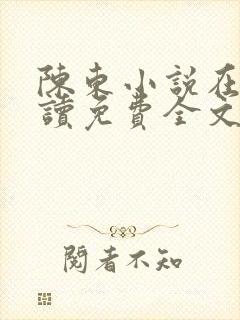 陳東小說在
讀免費全文
閱者不知